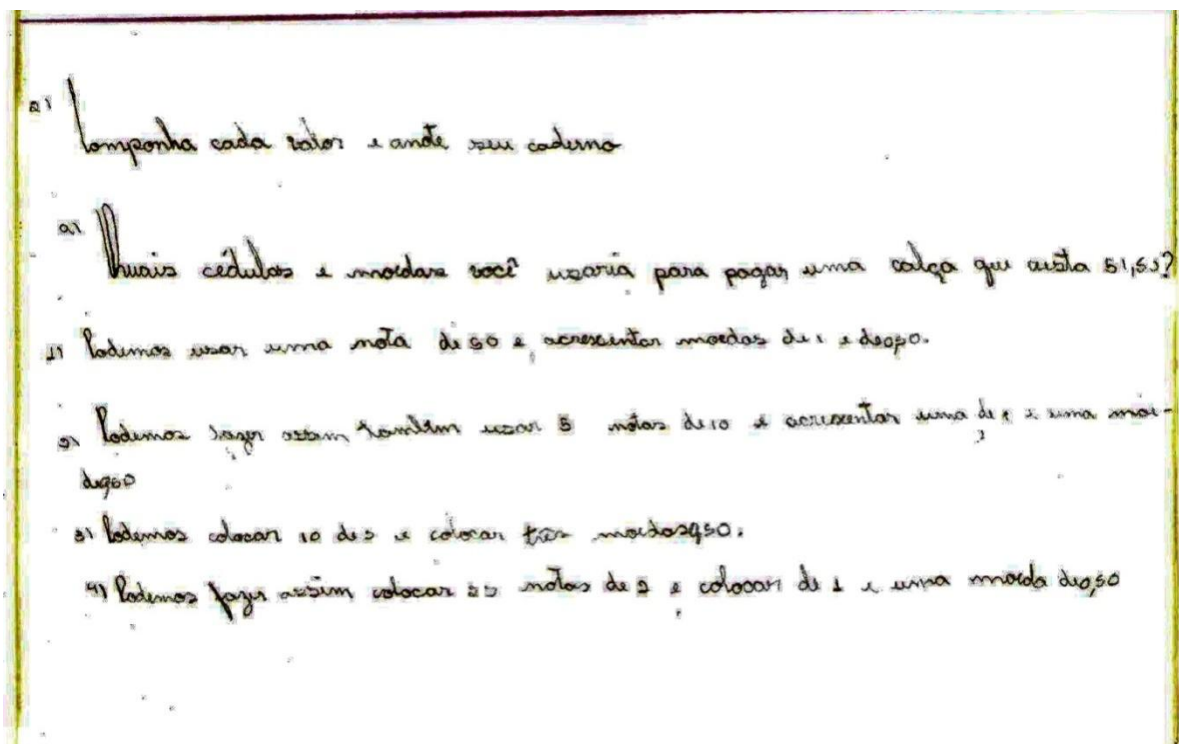 2) Componha cada valor e anote seu caderno
a) Quais cédulas e moedas você usaria para pagar uma calça que custa 51,50?
1) Podemos usar uma nota de 50 e acrescentar moedas de 1 e de 0,50.
2) Podemos fazer assim também usar 5 notas de 10 e acrescentar uma de 1 e uma moe-
de 0,50
3) Podemos colocar 10 de 5 e colocar três moedas 0,50.
4) Podemos fazer assim colocar 25 notas de 2 e colocar de 1 e uma moeda de 0,50